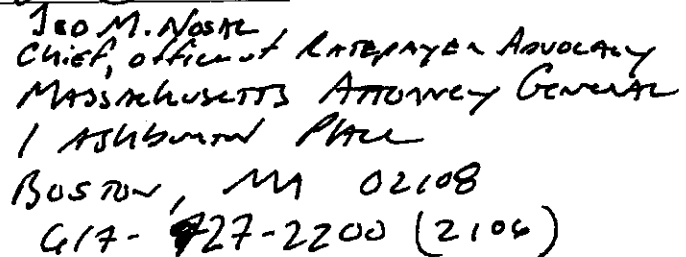 Jed M. Nosal
Chief, Office of Ratepayer Advocacy
Massachusetts Attorney General
1 Ashburton Place
Boston, MA 02108
617-727-2200 (2106)